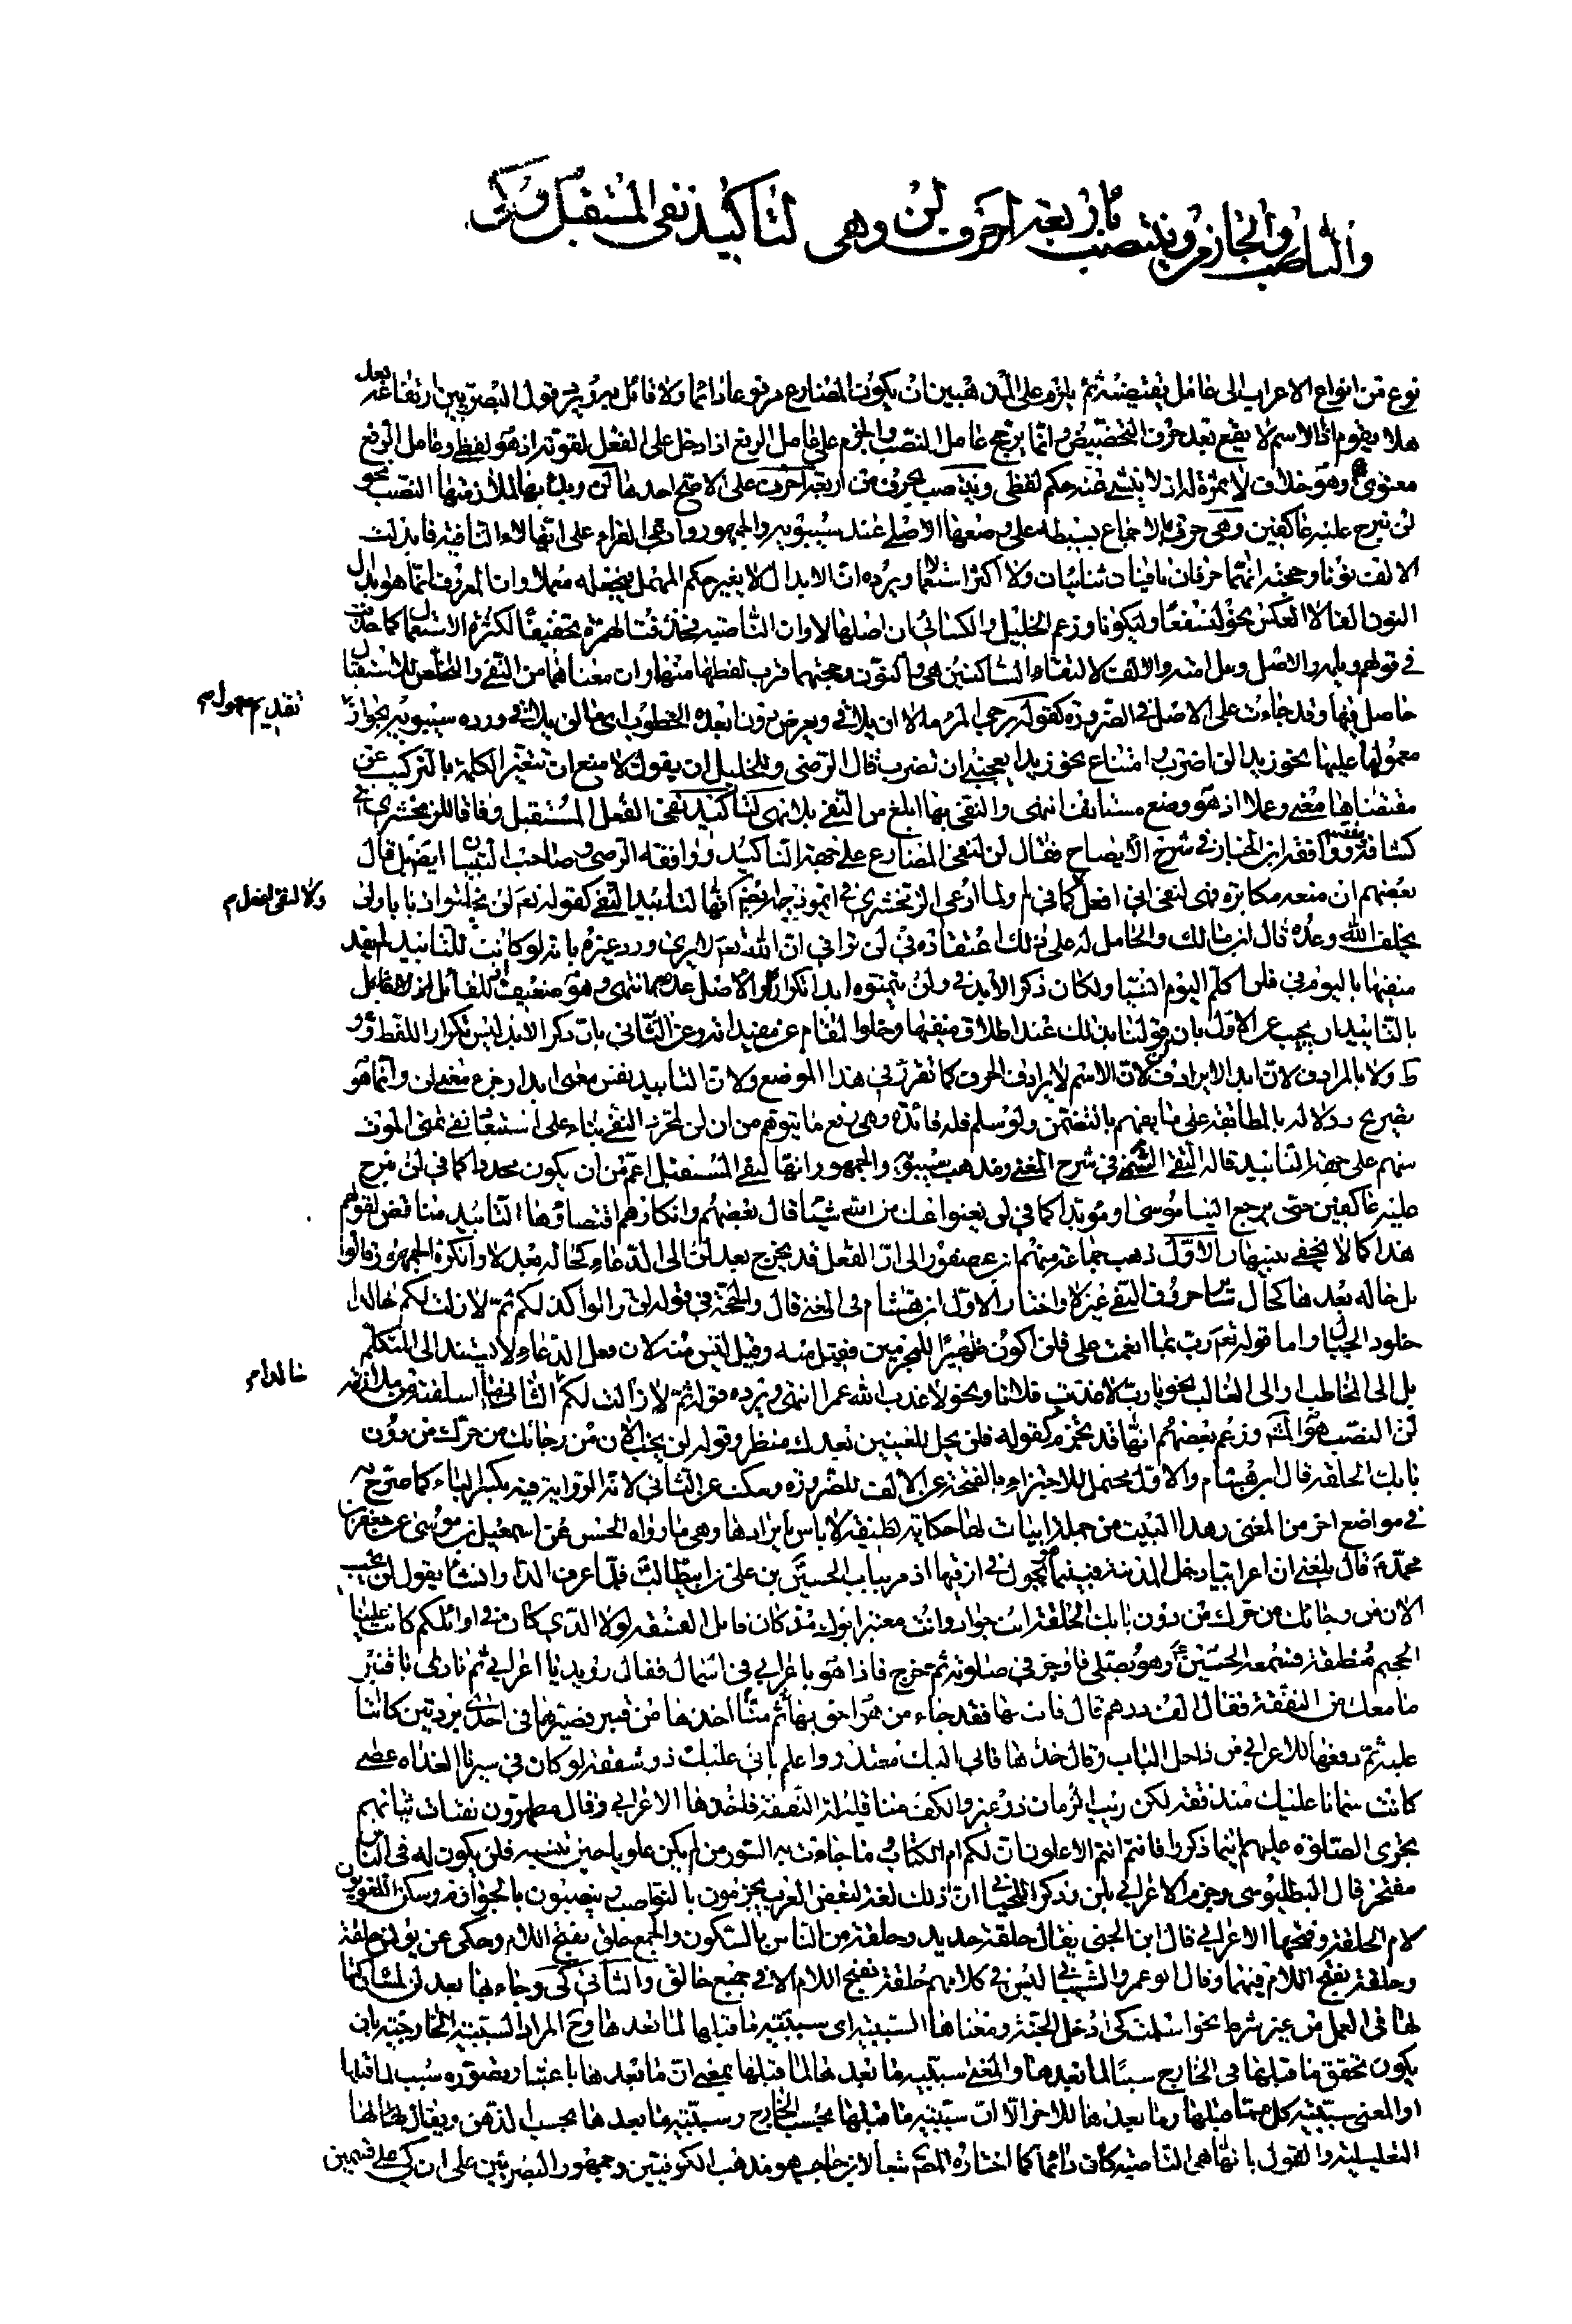 والناصب والجازم وينتصب باربعة احرف لن وهى لتاكيد نفى المستقبل وكى
نوع من انواع الاعراب الى عامل يقتضيه ثم يلزم على المذهبين ان يكون المضارع مرفوعا دائما ولا قائل به ويرد قول البصريين ارتفاعه بعد
هلا يقوم اذ الاسم لا يقع بعد حرف التخصيص وانما يرجح عامل النصب والجزم على عامل الرفع اذا دخل على الفعل لقوته اذ هو لفظى وعامل الرفع
معنوى وهو خلاف لا ثمرة له اذ لا ينشئ عنه حكم لفظى وينتصب بحرف من اربعة احرف على الاصح احدها لن وبدا بها لملازمتها النصب نحو
لن نبرح عليه عاكفين وهى حرف بالاجماع بسيطة على وضعها الاصلى عند سيبويه والجمهور وادعى الفراء على انها لا النافية فابدلت
الالف نونا وحجته انهما حرفان نافيان ثنائيان ولا اكثر استعمالا ويرده ان الابدال لا يغير حكم المهمل فيجعله معملا وان المعروف انما هو ابدال
النون الفا لا العكس نحو لنسفعا وليكونا وزعم الخليل والكسائى ان اصلها لا وان الناصبة فحذفت الهمزة تخفيفا لكثرة الاستعمال كما حذفت
فى قولهم ويلمه والاصل ويل امه والالف لالتقاء الساكنين وحجتهما قرب لفظها منها وان معناهما من النفى والتخليص للاستقبال
حاصل فيها وقد جاءت على الاصل فى الضرورة كقوله يرجى المرء ما لا ان يلاقى ويعرض دون ابعده الخطوب اى ما لن يلاقى ورده سيبويه بجواز
تقديم معمول م
معمولها عليها نحو زيدا لن اضرب وامتناع نحو زيدا يعجبنى ان تضرب قال الرضى وللخليل ان يقول لا منع ان تتغير الكلمة بالتركيب عن
مقتضاها معنى وعملا اذ هو وضع مستانف انتهى والنفى بها ابلغ من النفى بلا فهى لتاكيد نفى الفعل المستقبل وفاقا للزمخشرى فى
كشافه ووافقه ابن الخباز فى شرح الايضاح فقال لن لنفى المضارع على جهة التاكيد ووافقه الرضى وصاحب التبيان ايضا بل قال
بعضهم ان منعه مكابرة فهى لنفى انى افعل كما فى لم ولما وادعى الزمخشرى فى انموذجه انها لتابيد النفى كقوله تعالى لن يخلقوا ذبابا ولن
ولا لنفى افعل م
يخلف الله وعده قال ابن مالك والحامل له على ذلك اعتقاده فى لن ترانى ان الله تعالى لا يرى ورد غيره بانه لو كانت للتابيد لم يقيد
منفيها باليوم فى فلن اكلم اليوم انسيا ولكان ذكر الابد فى ولن يتمنوه ابدا تكرارا والاصل عدمه انتهى وهو ضعيف اذ للقائل
بالتابيد ان يجيب عن الاول بان قولنا بذلك عند اطلاق منفيها وخلو المقام عن مقيداته وعن الثانى بان ذكر الابد ليس تكرار اللفظ وهو
ظ ولا بالمرادف لان ابدا لا يرادف لن لان الاسم لا يرادف الحرف كما تقرر فى هذا الموضع ولان التابيد نفس معنى ابدا وجزء معنى لن وانما هو
تصريح ودلالة بالمطابقة على ما يفهم بالتضمن ولو سلم فله فائدة وهى رفع ما يتوهم من ان لن لمجرد النفى بناء على استبعاد نفى تمنى الموت
منهم على جهة التابيد قاله التقى الشمنى فى شرح المغنى ومذهب سيبويه والجمهور انها لنفى المستقبل اعم من ان يكون محدودا كما فى لن نبرح
عليه عاكفين حتى يرجع الينا موسى او مؤبدا كما فى لن يغنوا عنك من الله شيئا قال بعضهم وانكارهم اقتضاؤها التابيد مناقض لقولهم
هذا كما لا يخفى تنبيهان الاول ذهب جماعة منهم ابن عصفور الى ان الفعل قد يخرج بعد لن الى الدعاء كحاله بعد لا وانكره الجمهور وقالوا
بل حاله بعدها كحال سائر حروف النفى غير لا واختار الاول ابن هشام فى المغنى قال والحجة فى قوله لن تزالوا كذلكم ثم لا زلت لكم خالدا
خلود الجبال واما قوله تعالى رب بما انعمت على فلن اكون ظهيرا للمجرمين فقيل منه وقيل ليس منه لان فعل الدعاء لا يسند الى المتكلم
خالدا م
بل الى المخاطب او الى الغائب نحو يا رب لا عذبت فلانا ونحو لا عذب الله عمرا انتهى ويرده قوله ثم لا زلت لكم الثانى ما اسلفته من ملازمة
لن النصب هو الك وزعم بعضهم انها قد تجزم كقوله فلن يحل للعينين بعدك منظر وقوله لن يخب الان من رجائك من حرك من دون
بابك الحلقة قال ابن هشام والاول محتمل للاجتزاء بالفتحة عن الالف للضرورة وسكت عن الثانى لان الرواية فيه بكسر الباء كما صرح به
فى مواضع اخر من المغنى وهذا البيت من جملة ابيات لها حكاية لطيفة لا باس بايرادها وهى ما رواه الحسن عن اسمعيل بن موسى عن جعفر بن
محمد قال بلغنى ان اعرابيا دخل المدينة فبينما يجول فى ازقتها اذ مر بباب الحسين بن على بن ابيطالب فلما عرف الدار انشا يقول لن يخب
الان من رجائك من حرك من دون بابك الحلقة انت جواد وانت معتبر ابوك مذ كان قاتل الفسقة لولا الذى كان فى اوائلكم كانت علينا
الجحيم منطبقة فسمعه الحسين وهو يصلى فاوجز فى صلوته ثم خرج فاذا هو باعرابى فى اسمال فقال رويد يا اعرابى ثم نادى يا قنبر
ما معك من النفقة فقال الف درهم قال فات بها فقد جاء من هو احق بها منا ثم اخذها من قنبر وصيرها فى احدى بردتين كانتا
عليه ثم دفعها للاعرابى من داخل الباب وقال خذها فانى اليك معتذر واعلم بانى عليك ذو شفقة لو كان فى سيرنا الغداة عصى
كانت سمانا عليك مندفقة لكن ريب الزمان ذو غير والكف منا قليلة النفقة فاخذها الاعرابى وقال مطهرون نقيات ثيابهم
تجرى الصلوة عليهم اينما ذكروا فانتم انتم الاعلون ان لكم ام الكتاب وما جاءت به السور من لم يكن علويا حين تنسبه فلن يكون له فى الناس
مفتخر قال البطليوسى وجزم الاعرابى بلن وذكر اللحيانى ان ذلك لغة لبعض العرب يجزمون بالنواصب وينصبون بالجوازم وسكن اللغويون
لام الحلقة وفتحها الاعرابى قال ابن الجنى يقال حلقة حديد وحلقة من الناس بالسكون والجمع حلق بفتح اللام وحكى عن يونس حلقة
وحلقة بفتح اللام فيهما وقال ابو عمرو الشيبانى ليس فى كلامهم حلقة بفتح اللام الا فى جمع حالق والثانى كى وجاء بها بعد لن لمشاركتها
لها فى العمل من غير شرط نحو اسلمت كى ادخل الجنة ومعناها السببية اى سببية ما قبلها لما بعدها وح المراد السببية الخارجية بان
يكون تحقق ما قبلها فى الخارج سببا لما بعدها والمعنى سببية ما بعدها لما قبلها بمعنى ان ما بعدها باعتبار تصوره سبب لما قبلها
او المعنى سببية كل مما قبلها وما بعدها للاخر الا ان سببية ما قبلها بحسب الخارج وسببية ما بعدها بحسب الذهن ويقال لها لها
التعليلية والقول بانها هى الناصبة كان دائما كما اختاره المص تبعا لابن حاجب هو مذهب الكوفيين وجمهور البصريين على ان كى على قسمين